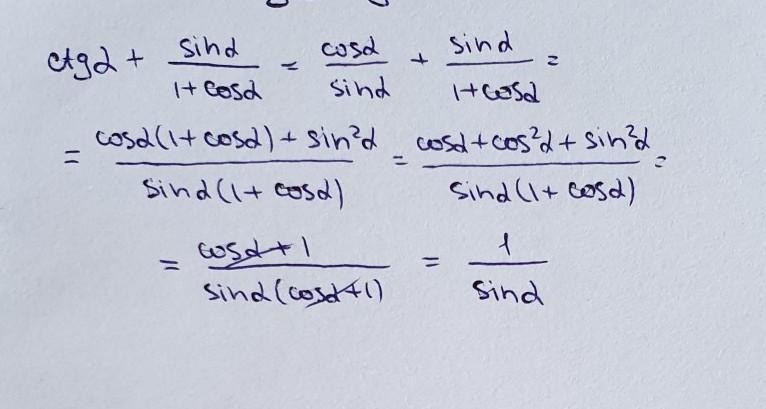 ctgα + sinα/(1+cosα) = cosα/sinα + sinα/(1+cosα) =
= (cosα(1+cosα)+sin²α)/(sinα(1+cosα)) = (cosα+cos²α+sin²α)/(sinα(1+cosα)) =
= (cosα+1)/(sinα(cosα+1)) = 1/sinα